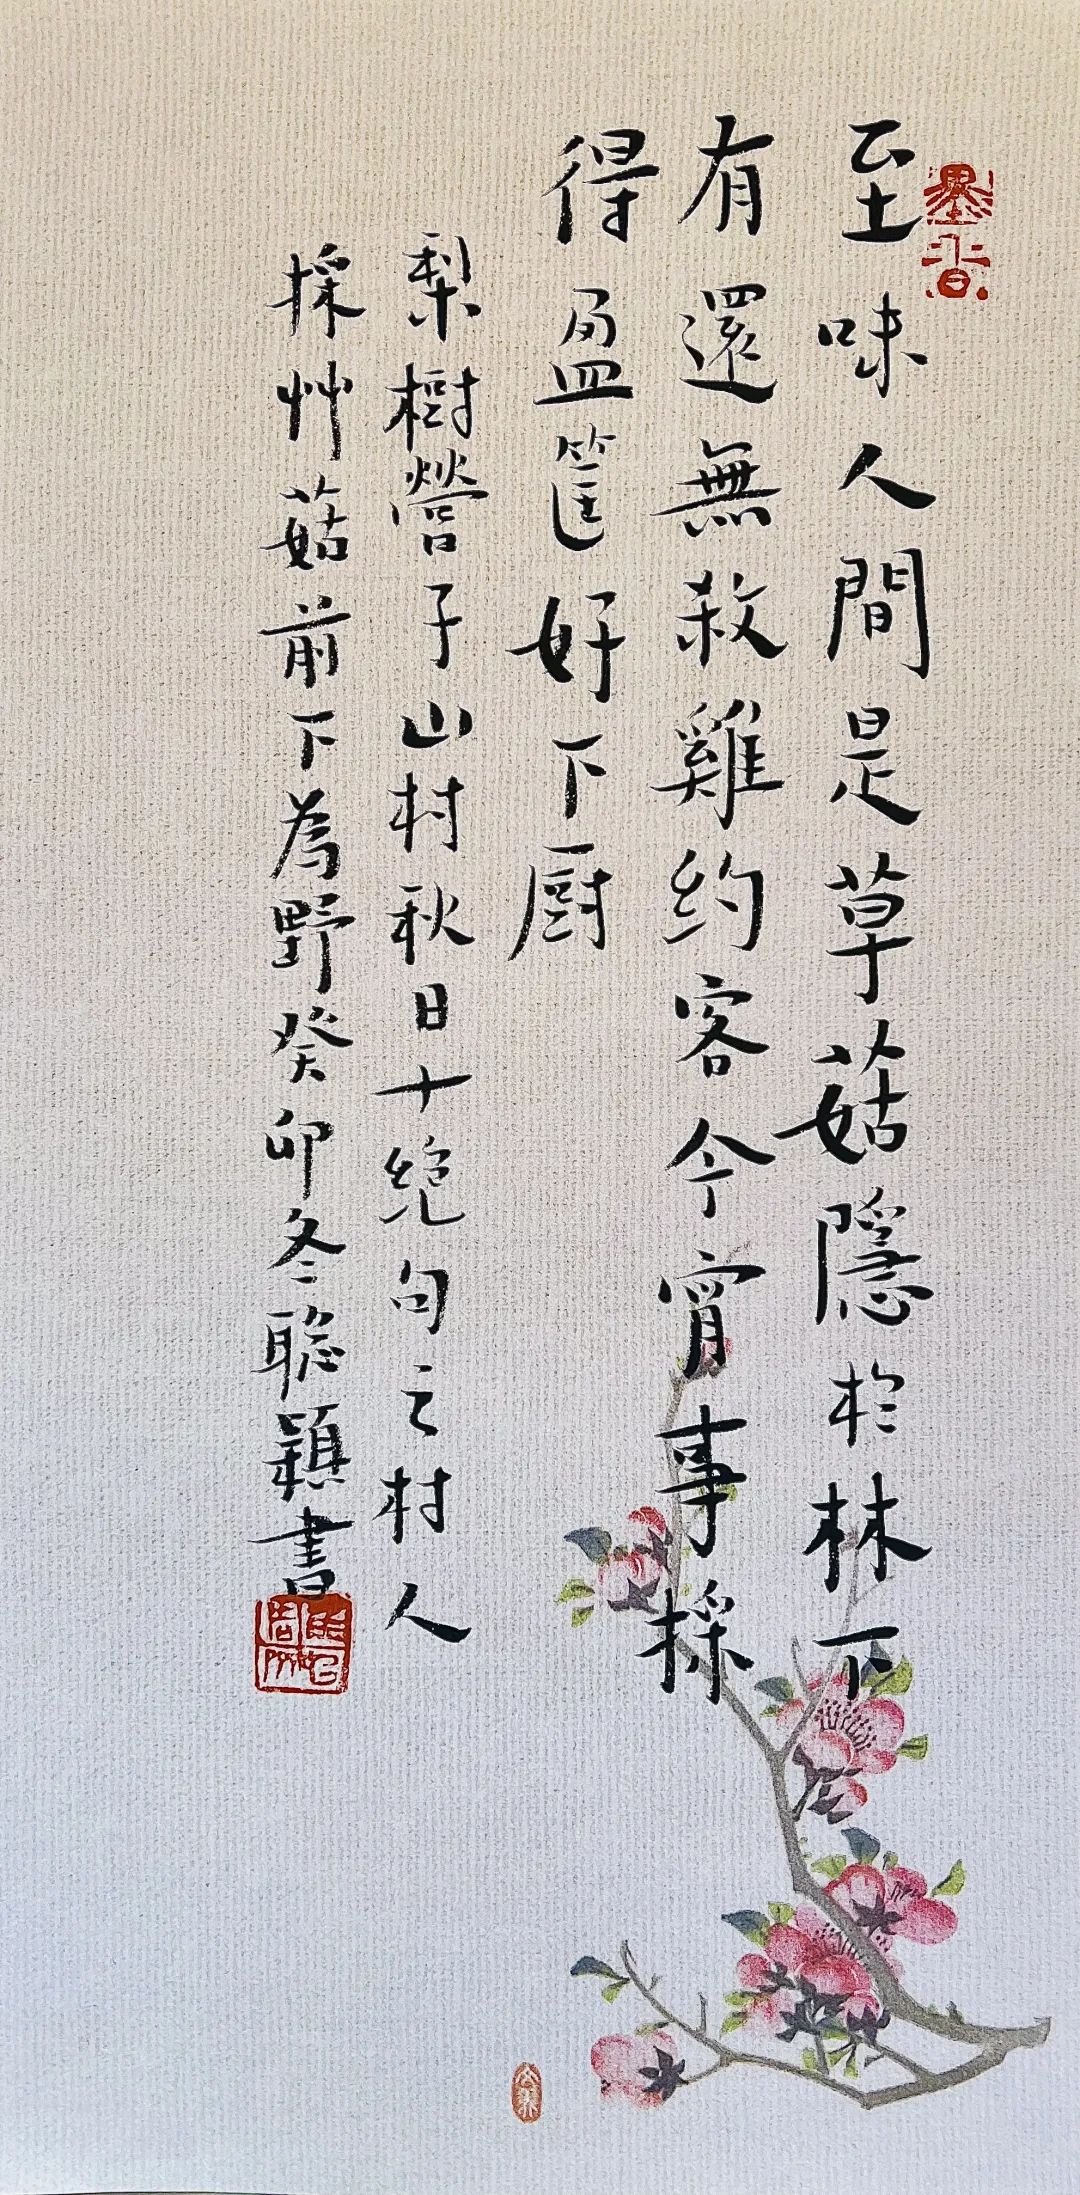 至味人間是草菇隱於林下
有還無殺雞約客今宵事採
得盈筐好下厨
梨樹營子山村秋日十絕句之村人
採艸菇前下為野癸卯冬聰穎書
墨香